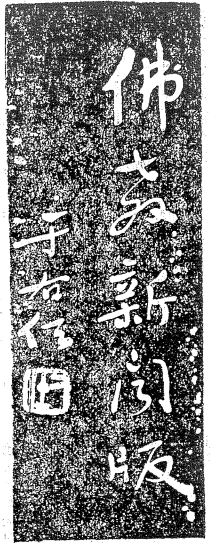 佛教新聞版
于右任